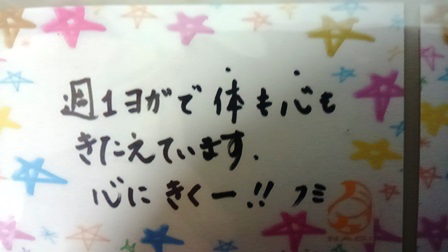 週1ヨガで体も心も
きたえています.
心にきくー!! フミ